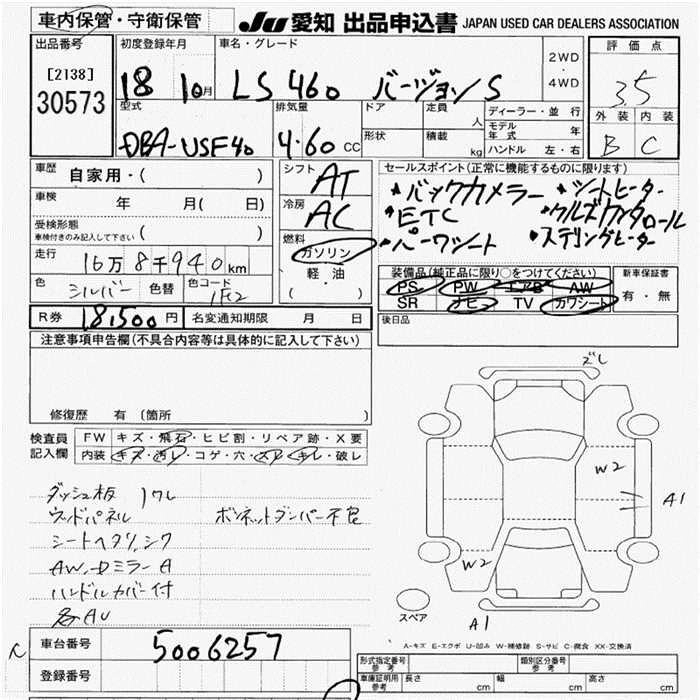 車内保管・守衛保管
JU 愛知 出品申込書 JAPAN USED CAR DEALERS ASSOCIATION
出品番号
[2138]
30573
初度登録年月
18 10月
車名・グレード
LS 460 バージョン S
2WD
・
4WD
評価点
3.5
外装 内装
B C
型式
DBA-USF40
排気量
4.60 CC
ドア
形状
定員 人
積載 kg
ディーラー・並行
モデル年式 年
ハンドル 左・右
車歴 自家用・( )
車検 年 月( 日)
受検形態
車検付きのみ記入して下さい ( )
走行 16万8千940km
色 シルバー 色替 色コード 1F2
シフト AT
冷房 AC
燃料
ガソリン
軽油
( )
セールスポイント(正常に機能するものに限り)
・バックカメラー ・シートヒーター
・ETC
・パーワシート ・ステリングヒーター
装備品(純正品に限り○をつけてください)
PS PW エアB AW
SR ナビ TV カワシート
新車保証書
有・無
R券 18,500円 名変通知期限 月 日
後日品
注意事項申告欄(不具合内容等は具体的に記入して下さい)
修復歴 有(箇所 )
検査員記入欄
FW キズ・飛石・ヒビ割・リペア跡・X要
内装 キズ・汚レ・コゲ・穴・スレ・キレ・破レ
ダッシュ板 ワレ
ウッドパネル ボンネットダンパー不良
シートヘタリ,シワ
AW,ドミラーA
ハンドルカバー付
各AU
ズレ
W2
A1
W2
A1
スペア
A-キズ E-エクボ U-凹み W-補修跡 S-サビ C-腐食 XX-交換済
車台番号 5006257
登録番号
形式指定番号 参考
類別区分番号 参考
車庫証明用 参考 長さ cm 幅 cm 高さ cm